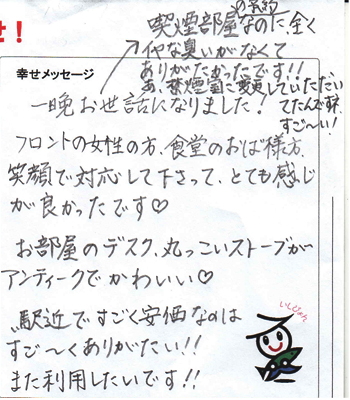 せ！
の予約
喫煙部屋なのに、全く
イヤな臭いがなくて
ありがたかったです!!
あ、禁煙室に変更していただい
てたんですネ、
すご～い!
幸せメッセージ
一晩お世話になりました！
フロントの女性の方、食堂のおば様方、
笑顔で対応して下さって、とても感じ
が良かったです♡
お部屋のデスク、丸っこいストーブが
アンティークでかわいい♡
駅近ですごく安価なのは
すご～くありがたい!!
また利用したいです!!